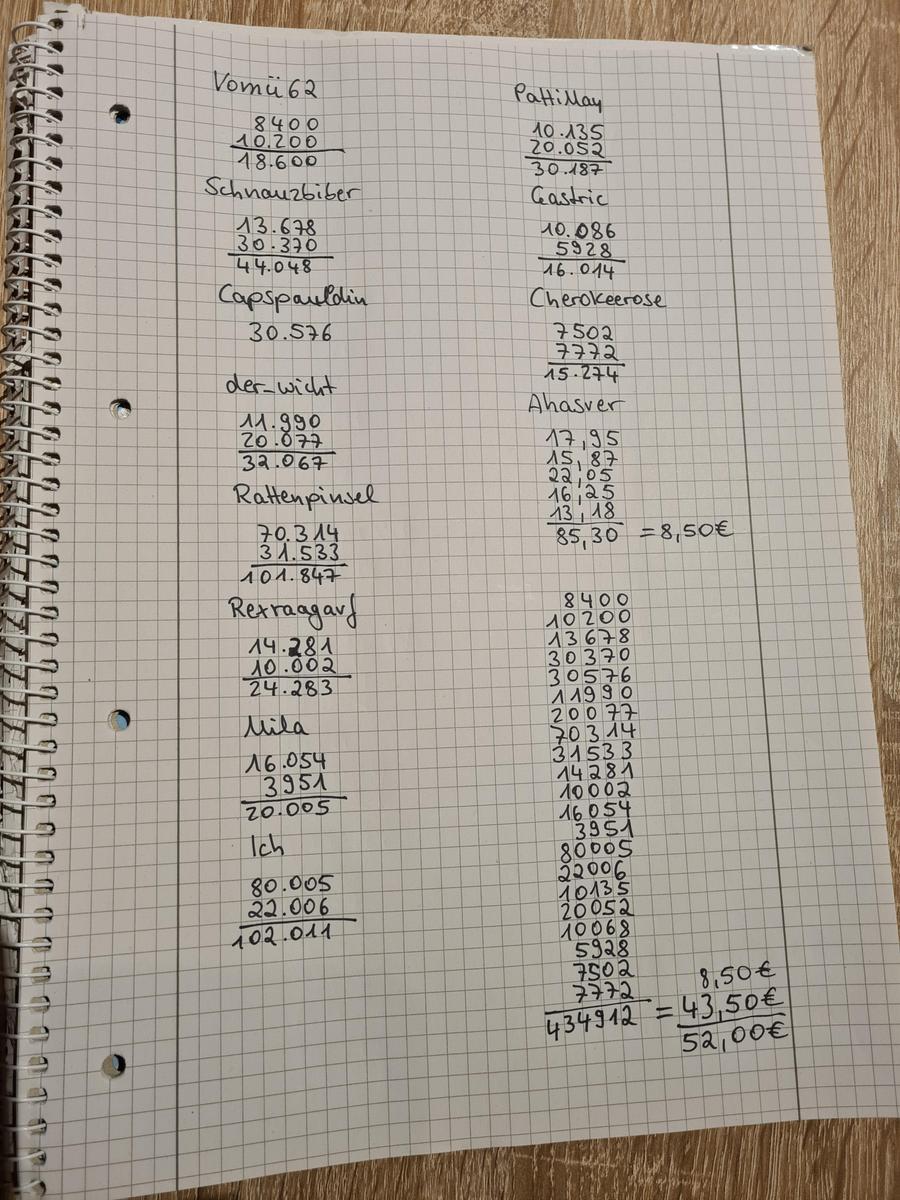 Vomü62
8400
10.200
18.600
Schnauzbiber
13.678
30.370
44.048
Capspauldin
30.576
der-wicht
11.990
20.077
32.067
Rattenpinsel
70.314
31.533
101.847
Rexraagarf
14.281
10.002
24.283
Mila
16.054
3951
20.005
Ich
80.005
22.006
102.011
PattiMay
10.135
20.052
30.187
Gastric
10.086
5928
16.014
Cherokeerose
7502
7772
15.274
Ahasver
17,95
15,87
22,05
16,25
13,18
85,30 = 8,50€
8400
10200
13678
30370
30576
11990
20077
70314
31533
14281
10002
16054
3951
80005
22006
10135
20052
10068
5928
7502
7772
8,50€
434912 = 43,50€
52,00€